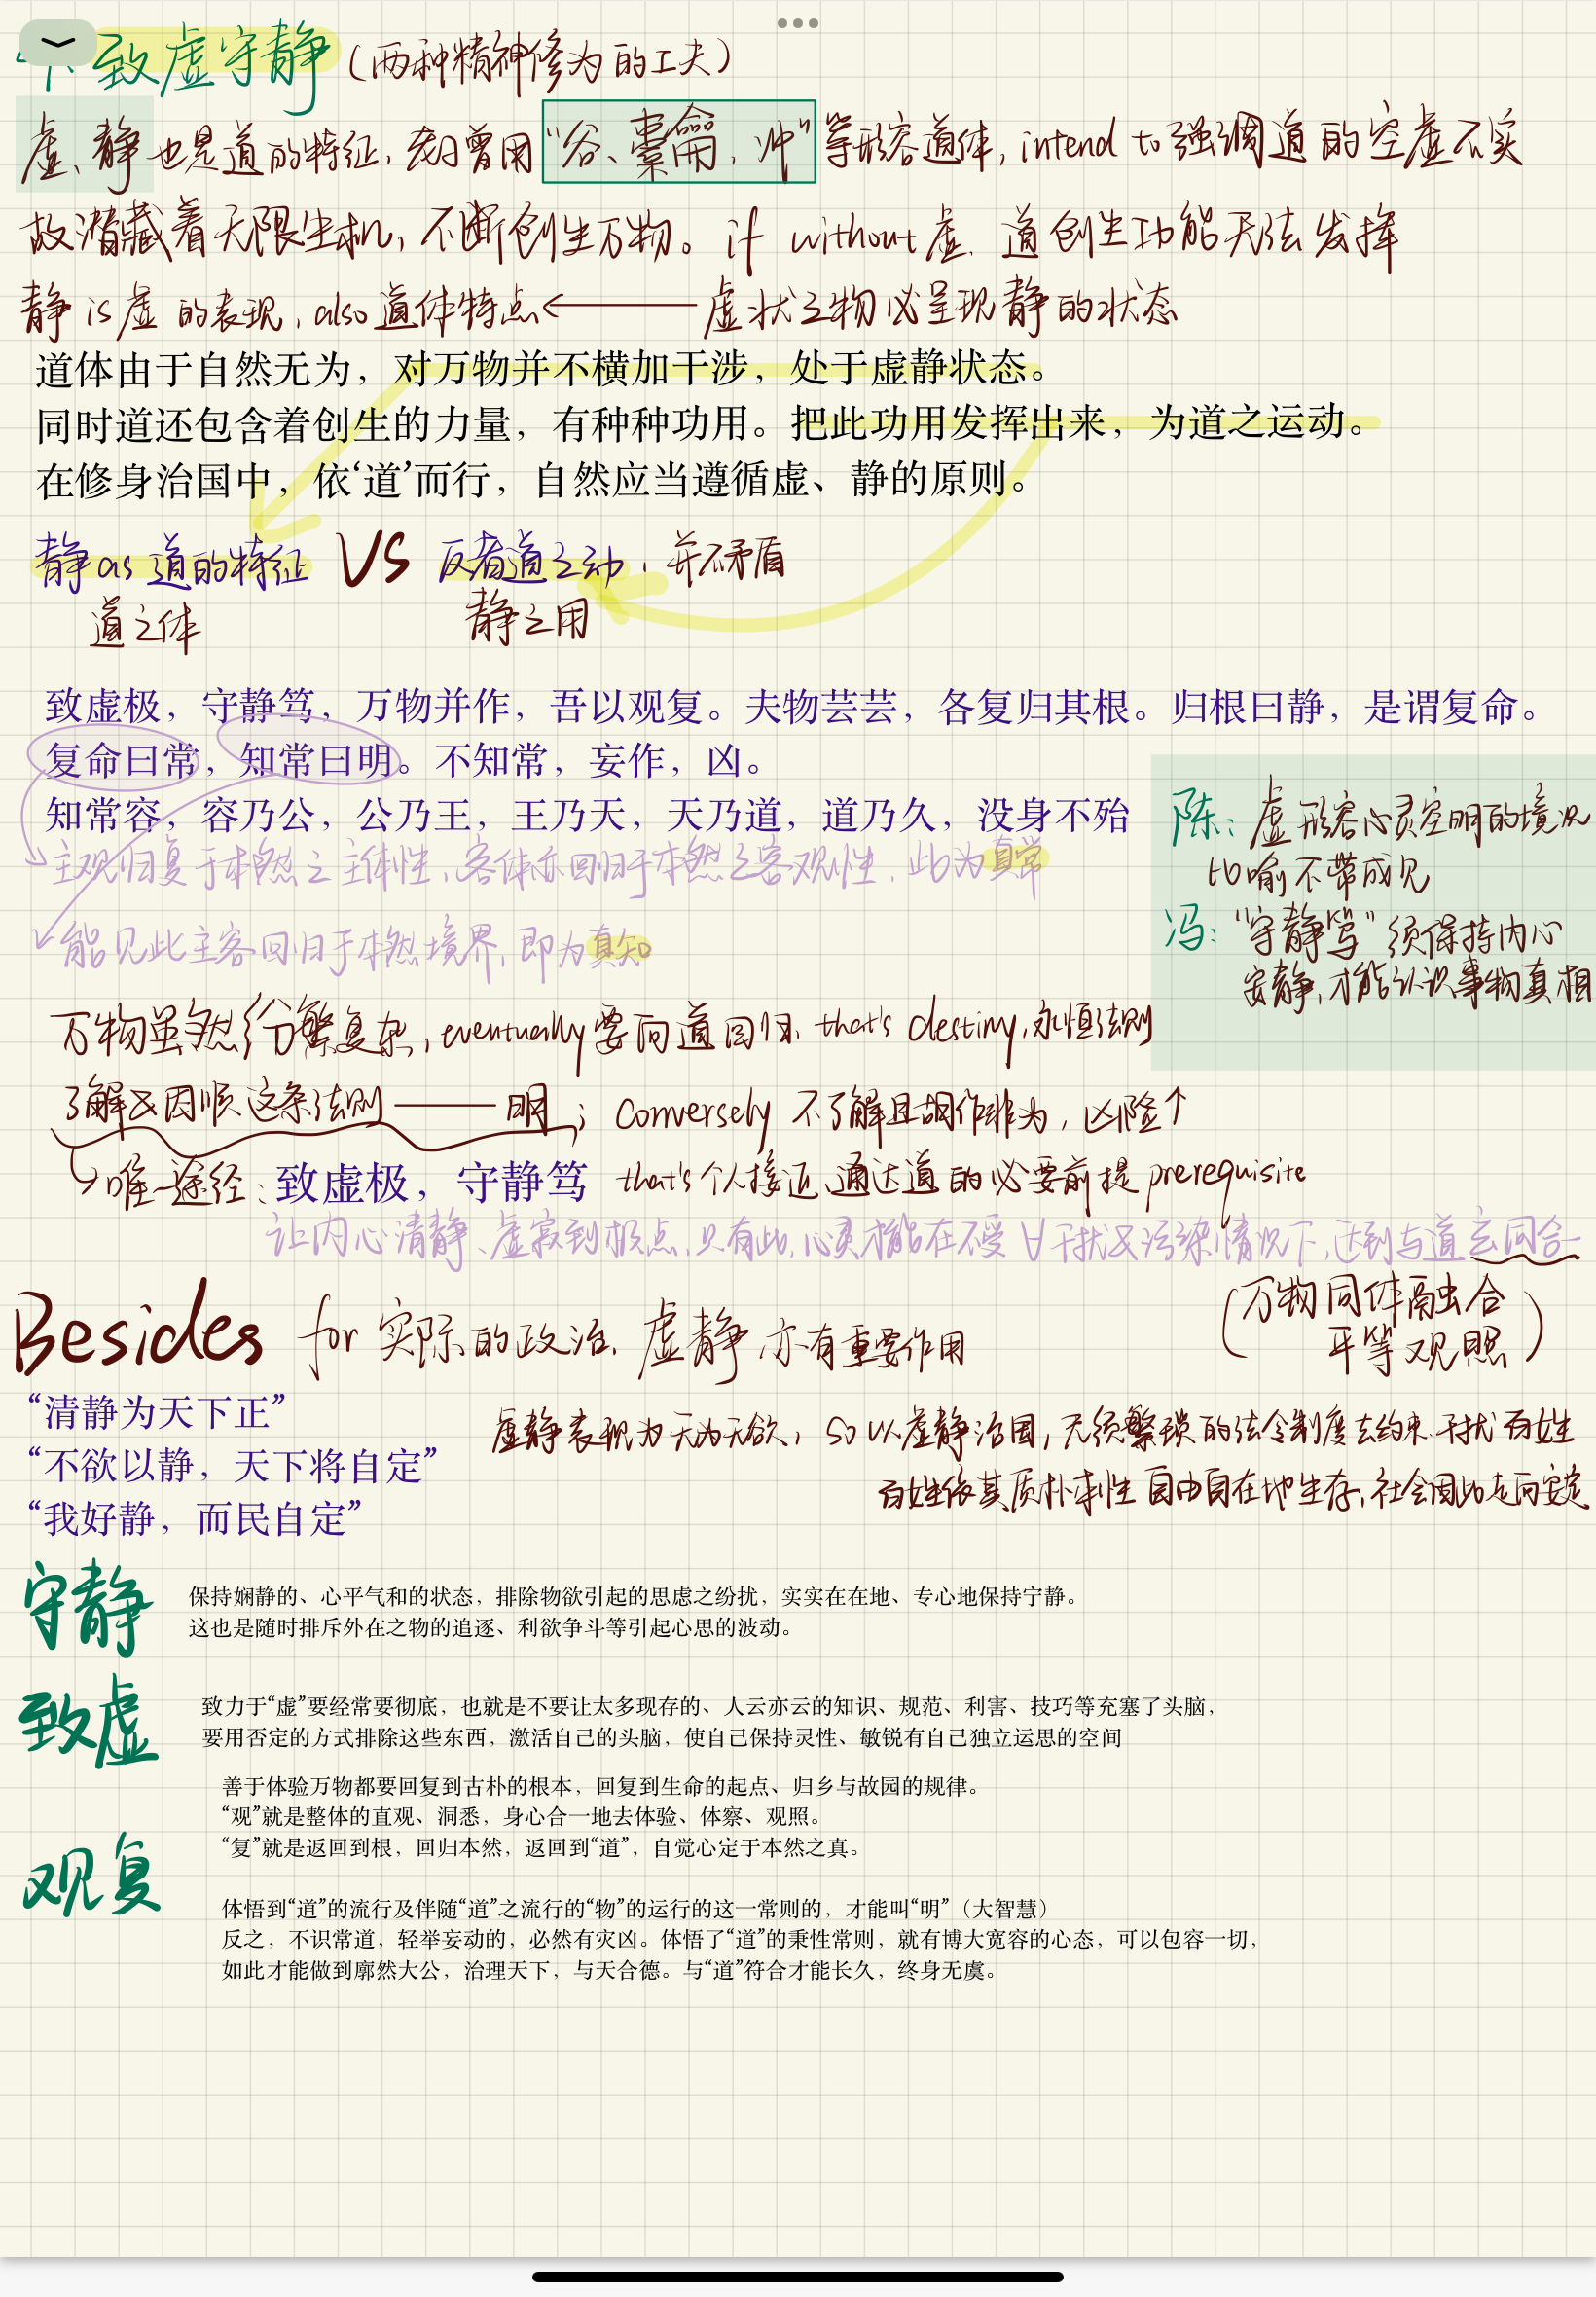 致虚守静（两种精神修为的工夫）
虚、静也是道的特征，老曰曾用“谷、橐龠、冲”等形容道体，intend to 强调道的空虚不实
故潜藏着无限生机，不断创生万物。if without 虚、道创生功能无法发挥
静 is 虚的表现，also 道体特点←——虚状之物必呈现静的状态
道体由于自然无为，对万物并不横加干涉，处于虚静状态。
同时道还包含着创生的力量，有种种功用。把此功用发挥出来，为道之运动。
在修身治国中，依‘道’而行，自然应当遵循虚、静的原则。
静 as 道的特征 VS 反者道之动，并不矛盾
道之体 静之用
致虚极，守静笃，万物并作，吾以观复。夫物芸芸，各复归其根。归根曰静，是谓复命。
复命曰常，知常曰明。不知常，妄作，凶。
知常容，容乃公，公乃王，王乃天，天乃道，道乃久，没身不殆
主观归复于本然之主体性、客体亦回归于本然之客观性，此为真常
能见此主客回归于本然境界，即为真知
陈：虚形容心灵空明的境况
比喻不带成见
冯：“守静笃”须保持内心
安静，才能认识事物真相
万物虽然纷繁复杂，eventually 要向道回归、that's destiny，永恒法则
了解及因顺这条法则——明； conversely 不了解且胡作非为，凶险↑
唯一途径：致虚极，守静笃 that's 个人接近、通达道的必要前提 prerequisite
让内心清静、虚寂到极点，只有此，心灵才能在不受∀干扰及污染情况下，达到与道玄同合一
（万物同体融合
平等观照）
Besides for 实际的政治、虚静亦有重要作用
“清静为天下正”
“不欲以静，天下将自定”
“我好静，而民自定”
虚静表现为无为无欲，so 以虚静治国，无须繁琐的法令制度去约束、干扰百姓
百姓依其质朴本性自由自在地生存，社会因此走向安定
守静
保持娴静的、心平气和的状态，排除物欲引起的思虑之纷扰，实实在在地、专心地保持宁静。
这也是随时排斥外在之物的追逐、利欲争斗等引起心思的波动。
致虚
致力于“虚”要经常要彻底，也就是不要让太多现存的、人云亦云的知识、规范、利害、技巧等充塞了头脑，
要用否定的方式排除这些东西，激活自己的头脑，使自己保持灵性、敏锐有自己独立运思的空间
观复
善于体验万物都要回复到古朴的根本，回复到生命的起点、归乡与故园的规律。
“观”就是整体的直观、洞悉，身心合一地去体验、体察、观照。
“复”就是返回到根，回归本然，返回到“道”，自觉心定于本然之真。
体悟到“道”的流行及伴随“道”之流行的“物”的运行的这一常则的，才能叫“明”（大智慧）
反之，不识常道，轻举妄动的，必然有灾凶。体悟了“道”的秉性常则，就有博大宽容的心态，可以包容一切，
如此才能做到廓然大公，治理天下，与天合德。与“道”符合才能长久，终身无虞。